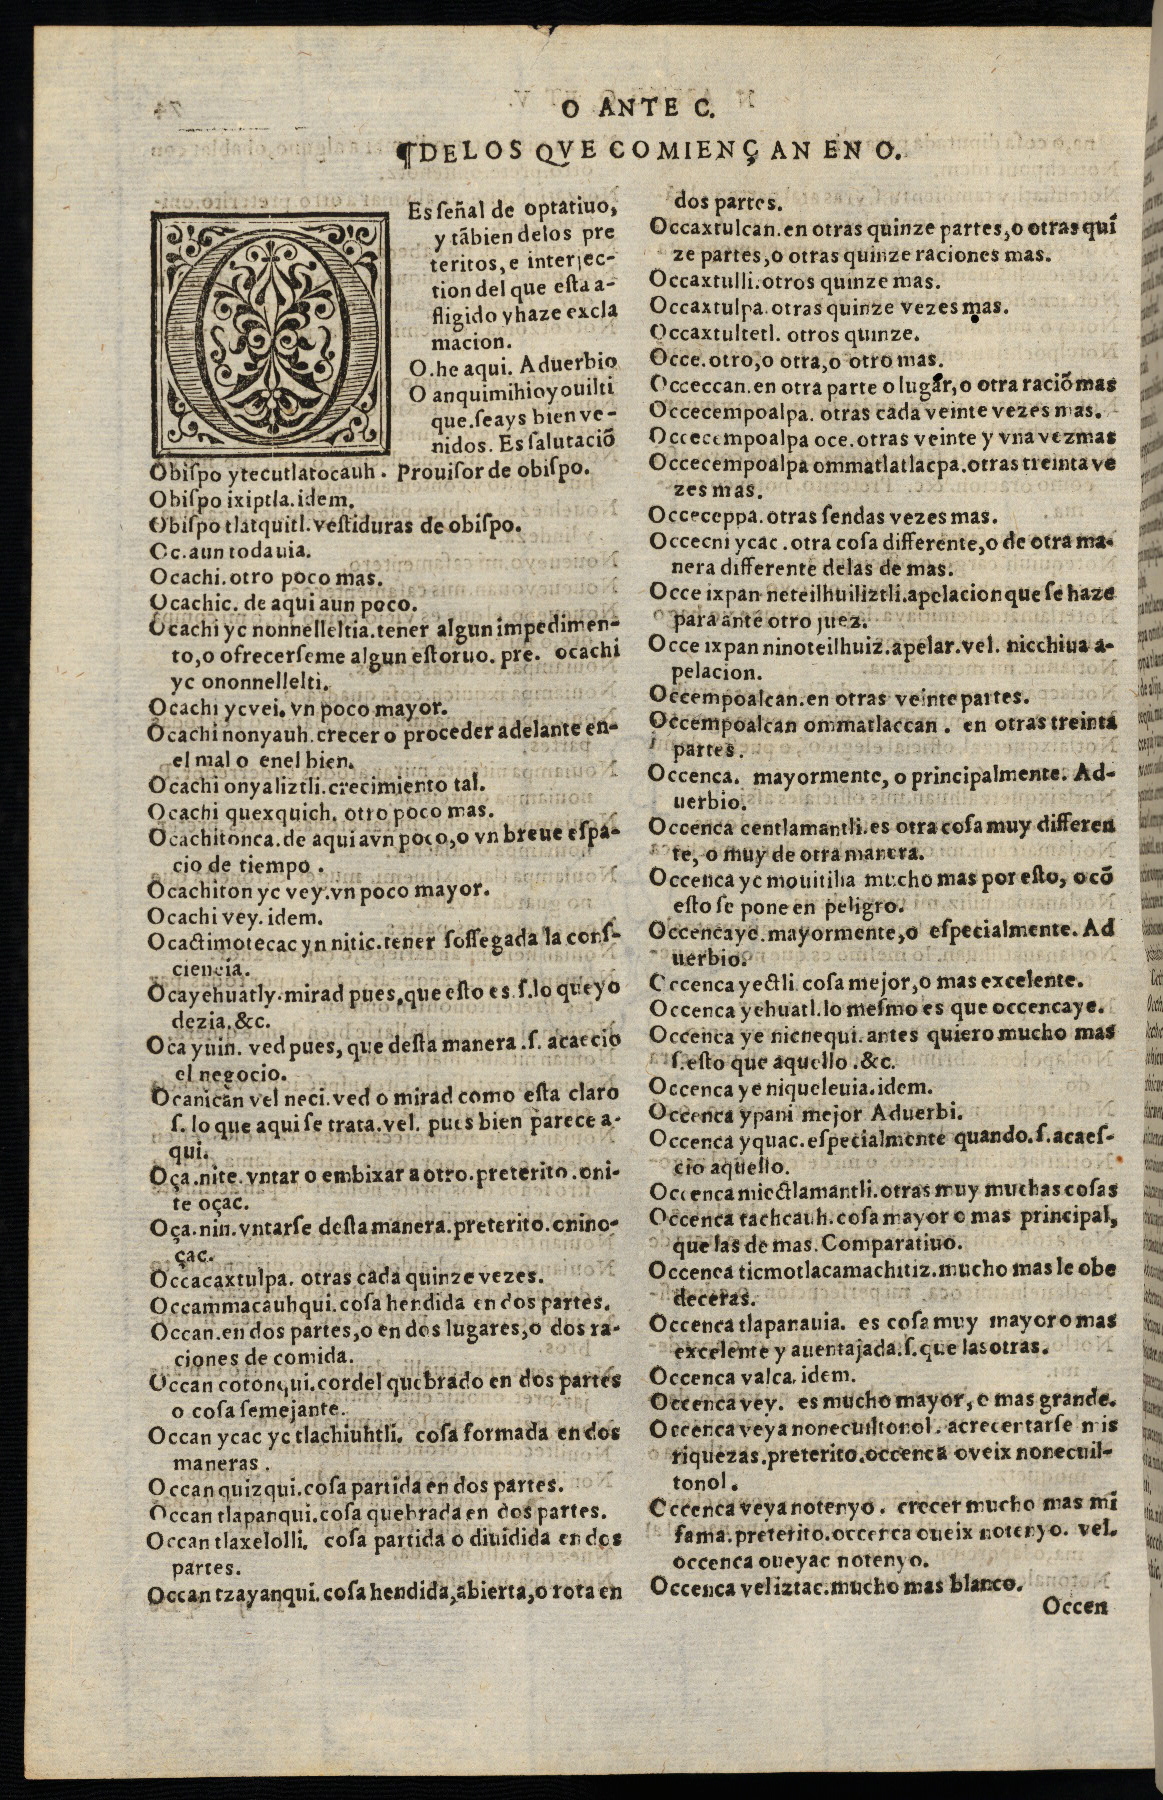 O ANTE C.
¶DELOS QVE COMIENÇAN EN O.
O Es ſeñal de optatiuo,
y tãbien delos pre
teritos, e interjec-
tion del que eſta a-
fligido y haze excla
macion.
O.he aqui. Aduerbio
O anquimihioyouilti
que.ſeays bien ve-
nidos. Es ſalutaciõ
Obiſpo ytecutlatocauh. Prouiſor de obiſpo.
Obiſpo ixiptla.idem.
Obiſpo tlatquitl.veſtiduras de obiſpo.
Oc.aun todauia.
Ocachi.otro poco mas.
Ocachic. de aqui aun poco.
Ocachi yc nonnelleltia.tener algun impedimen-
to,o ofrecerſeme algun eſtoruo. pre. ocachi
yc ononnellelti.
Ocachi ycvei. vn poco mayor.
Ocachi nonyauh.crecer o proceder adelante en-
el mal o enel bien.
Ocachi onyaliztli.crecimiento tal.
Ocachi quexquich. otro poco mas.
Ocachitonca.de aqui avn poco,o vn breue eſpa-
cio de tiempo.
Ocachiton yc vey.vn poco mayor.
Ocachi vey.idem.
Ocactimotecac yn nitic.tener ſoſſegada la conſ-
ciencia.
Ocayehuatly.mirad pues,que eſto es.ſ.lo que yo
dezia.&c.
Oca yuin. ved pues, que deſta manera.ſ. acaecio
el negocio.
Ocanicàn vel neci.ved o mirad como eſta claro
ſ.lo que aqui ſe trata.vel. pues bien parece a-
qui.
Oça.nite.vntar o embixar a otro.preterito.oni-
te oçac.
Oça.nin.vntarſe deſta manera.preterito.onino-
çac.
Occacaxtulpa. otras cada quinze vezes.
Occammacauhqui.coſa hendida en dos partes.
Occan.en dos partes,o en dos lugares,o dos ra-
ciones de comida.
Occan cotonqui.cordel quebrado en dos partes
o coſa ſemejante.
Occan ycac yc tlachiuhtli. coſa formada en dos
maneras.
Occan quizqui.coſa partida en dos partes.
Occan tlapanqui.coſa quebrada en dos partes.
Occan tlaxelolli. coſa partida o diuidida en dos
partes.
Occan tzayanqui.coſa hendida,abierta,o rota en
dos partes.
Occaxtulcan.en otras quinze partes,o otras quĩ
ze partes,o otras quinze raciones mas.
Occaxtulli.otros quinze mas.
Occaxtulpa.otras quinze vezes mas.
Occaxtultetl. otros quinze.
Occe.otro,o otra,o otro mas.
Occeccan.en otra parte o lugar,o otra raciõ mas
Occecempoalpa. otras cada veinte vezes mas.
Occecempoalpa oce.otras veinte y vna vez mas
Occecempoalpa ommatlatlacpa.otras treinta ve
zes mas.
Occeceppa.otras ſendas vezes mas.
Occecni ycac.otra coſa differente,o de otra ma-
nera differente delas de mas.
Occe ixpan neteilhuiliztli.apelacion que ſe haze
para ante otro juez.
Occe ixpan ninoteilhuiz.apelar.vel. nicchiua a-
pelacion.
Occempoalcan.en otras veinte partes.
Occempoalcan ommatlaccan. en otras treinta
partes.
Occenca. mayormente, o principalmente. Ad-
uerbio.
Occenca centlamantli.es otra coſa muy differen
te, o muy de otra manera.
Occenca yc mouitilia mucho mas por eſto, o cõ
eſto ſe pone en peligro.
Occencaye.mayormente,o eſpecialmente. Ad
uerbio.
Occenca yectli coſa mejor,o mas excelente.
Occenca yehuatl.lo meſmo es que occencaye.
Occenca ye nicnequi.antes quiero mucho mas
ſ.eſto que aquello.&c.
Occenca ye niqueleuia.idem.
Occenca ypani mejor Aduerbi.
Occenca yquac.eſpecialmente quando.ſ.acaeſ-
cio aquello.
Occenca miectlamantli.otras muy muchas coſas
Occenca tachcauh.coſa mayor o mas principal,
que las de mas.Comparatiuo.
Occenca ticmotlacamachitiz.mucho mas le obe
deceras.
Occenca tlapanauia. es coſa muy mayor o mas
excelente y auentajada.ſ.que las otras.
Occenca valca.idem.
Occenca vey. es mucho mayor, o mas grande.
Occenca veya nonecuiltonol. acrecentarſe mis
riquezas.preterito.occenca oveix nonecuil-
tonol.
Occenca veya notenyo. crecer mucho mas mi
fama.preterito.occenca oueix notenyo. vel.
occenca oueyac notenyo.
Occenca veliztac.mucho mas blanco.
Occen